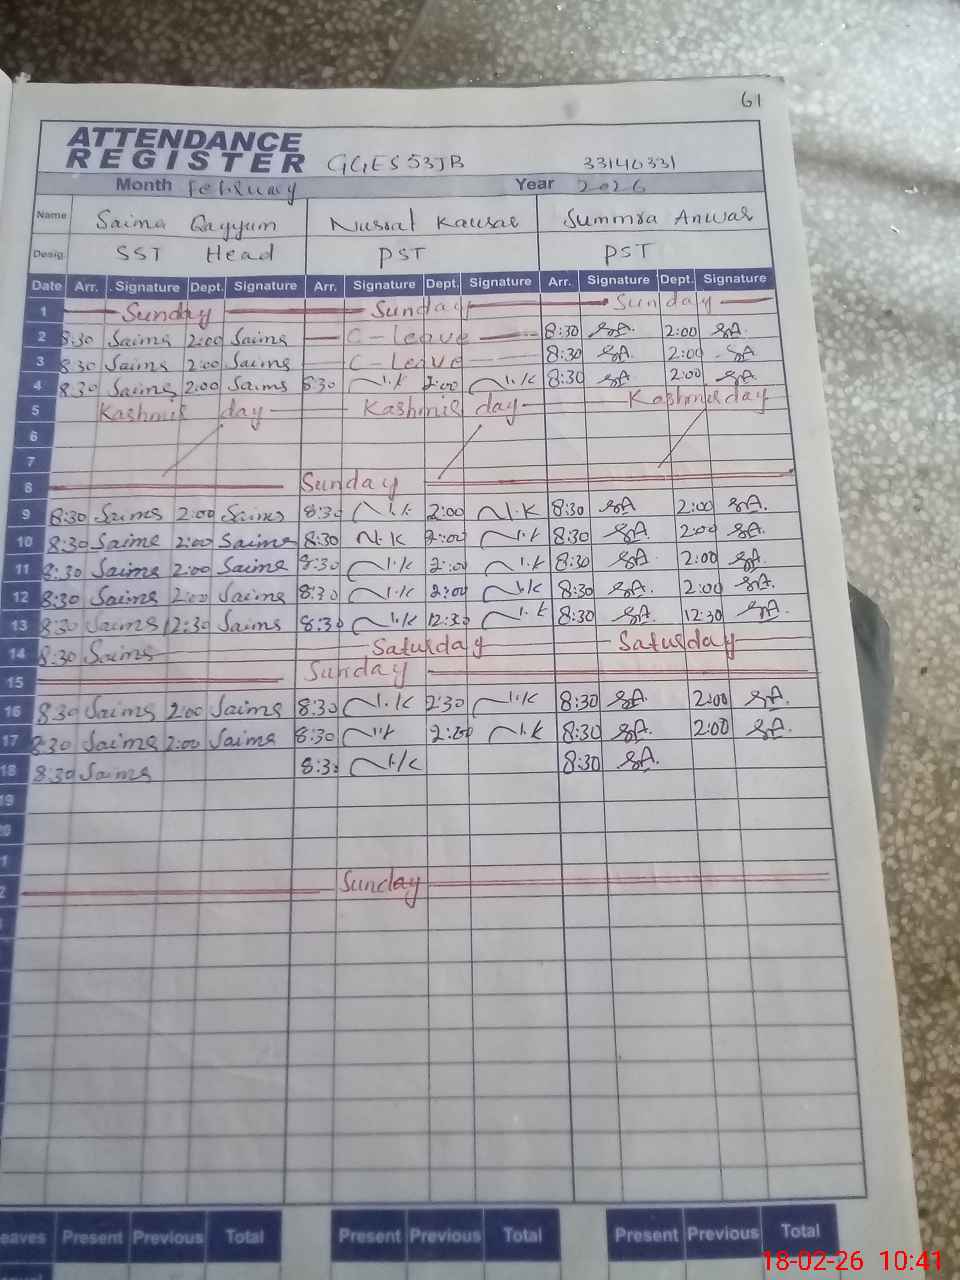 61
ATTENDANCE
REGISTER GGES 53JB 33140331
Month February Year 2026
Name Saima Qayyum Nusrat Kausar Summra Anwar
Desig. SST Head PST PST
Date Arr. Signature Dept. Signature Arr. Signature Dept. Signature Arr. Signature Dept. Signature
1 Sunday Sunday Sunday
2 8:30 Saima 2:00 Saima C-leave 8:30 SA. 2:00 SA.
3 8:30 Saima 2:00 Saima C-leave 8:30 SA. 2:00 SA.
4 8:30 Saima 2:00 Saima 8:30 N.K 2:00 N.K 8:30 SA. 2:00 SA.
5 Kashmir day Kashmir day Kashmir day
6
7
8 Sunday
9 8:30 Saima 2:00 Saima 8:30 N.K 2:00 N.K 8:30 SA 2:00 SA.
10 8:30 Saima 2:00 Saima 8:30 N.K 2:00 N.K 8:30 SA. 2:00 SA.
11 8:30 Saima 2:00 Saima 8:30 N.K 2:00 N.K 8:30 SA. 2:00 SA.
12 8:30 Saima 2:00 Saima 8:30 N.K 2:00 N.K 8:30 SA. 2:00 SA.
13 8:30 Saima 12:30 Saima 8:30 N.K 12:30 N.K 8:30 SA. 12:30 SA.
14 8:30 Saima Saturday Saturday
15 Sunday
16 8:30 Saima 2:00 Saima 8:30 N.K 2:30 N.K 8:30 SA. 2:00 SA.
17 8:30 Saima 2:00 Saima 8:30 N.K 2:00 N.K 8:30 SA. 2:00 SA.
18 8:30 Saima 8:30 N.K 8:30 SA.
19
20
1
2 Sunday
eaves Present Previous Total Present Previous Total Present Previous Total
18-02-26 10:41